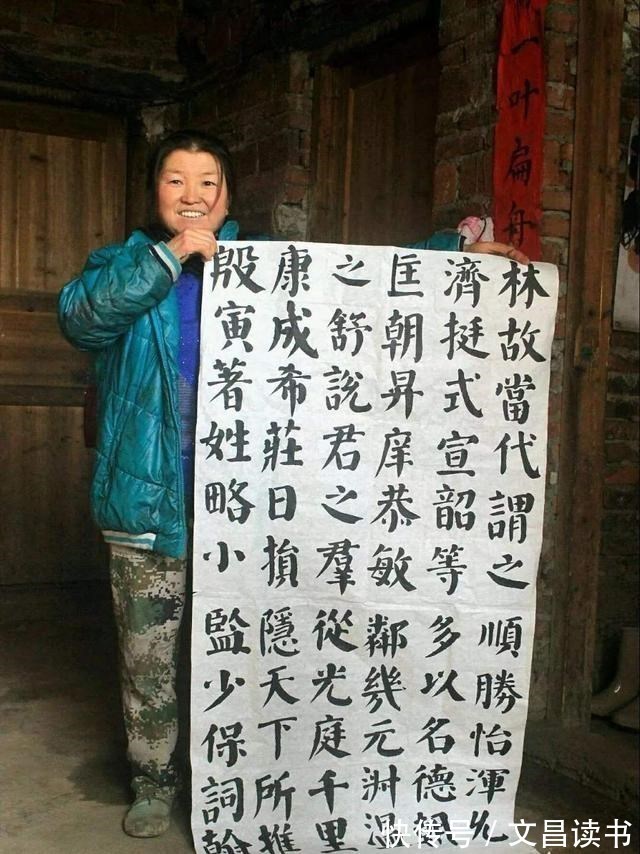 一叶扁舟
林故當代謂之順勝怡渾允
濟挺式宣韶等多以名德
匡朝昇庠恭敏鄰幾元淑溫
之舒說君之羣從光庭千里
康成希莊日損隱天下所推
殷寅著姓略小監少保詞翰
快传号 / 文昌读书